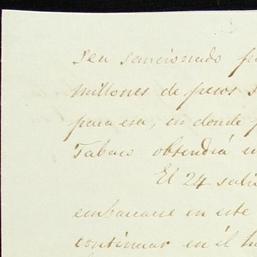 sea sancionado
millones de pesos
para esa, en donde
Tabaco obtendrá
El 24 
embarcarse en este
continuar en él